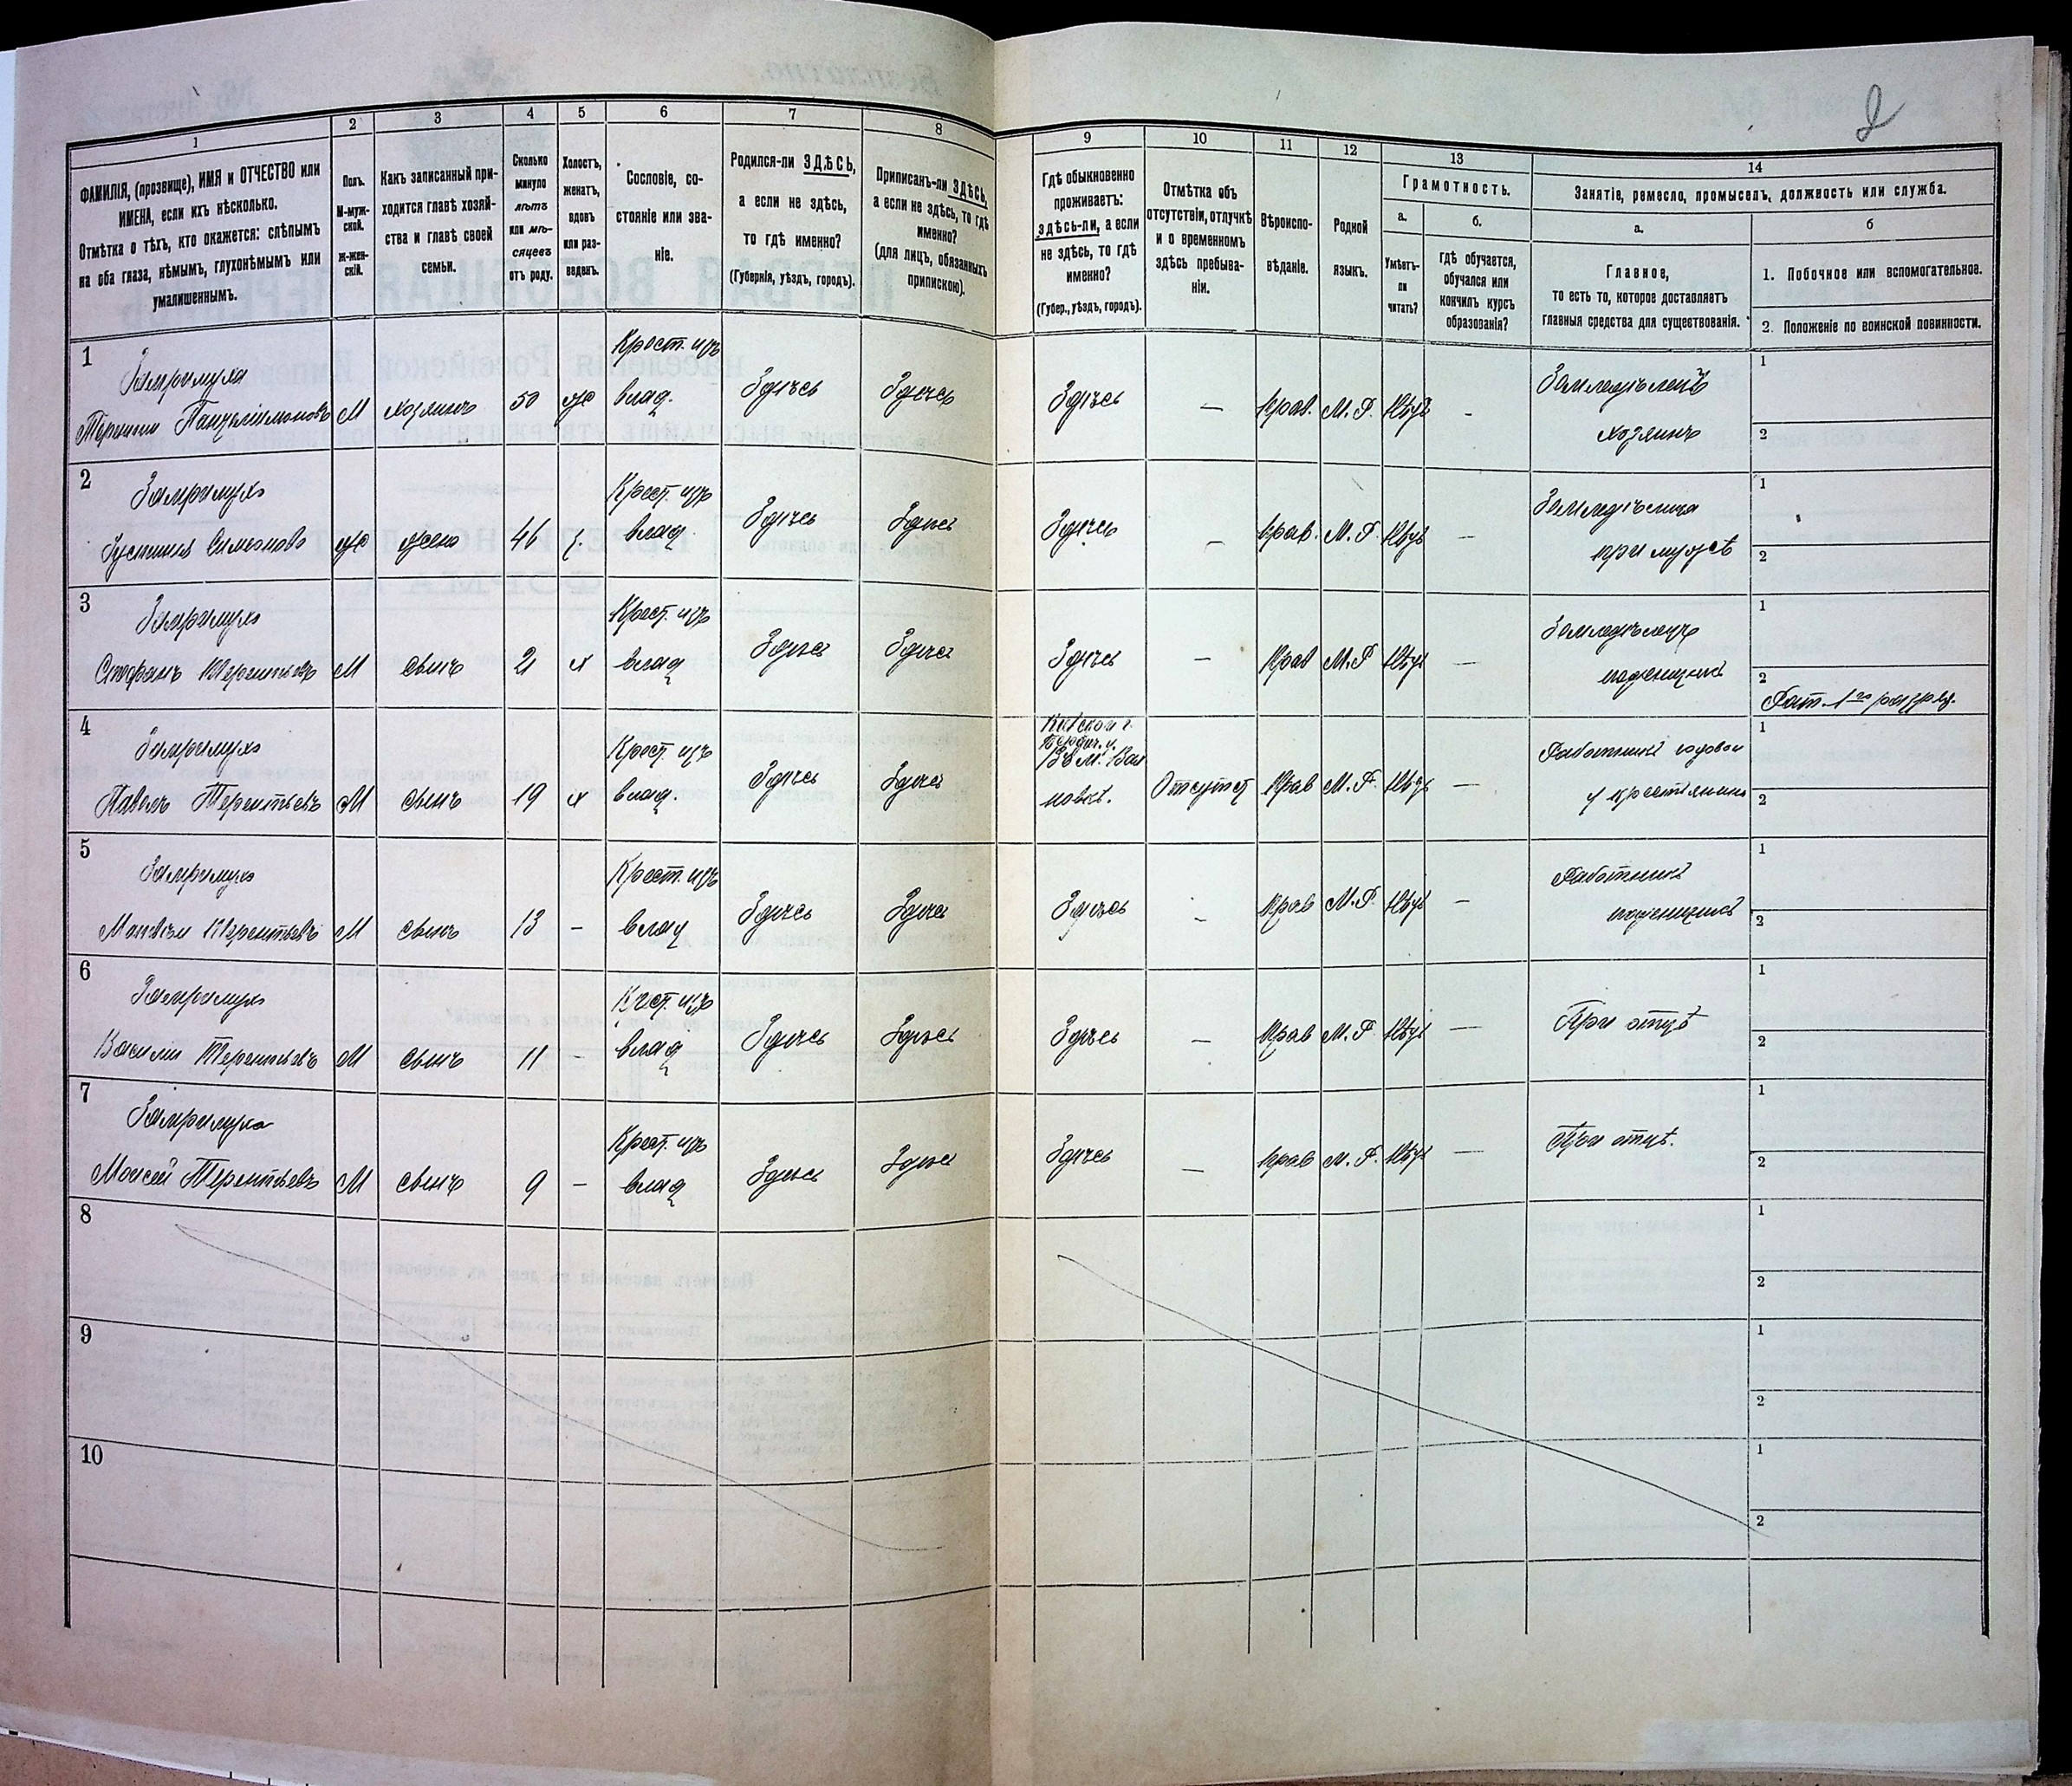 2
1
ФАМИЛІЯ, (прозвище), ИМЯ и ОТЧЕСТВО или
ИМЕНА, если ихъ нѣсколько.
Отмѣтка о тѣхъ, кто окажется: слѣпымъ
на оба глаза, нѣмымъ, глухонѣмымъ или
умалишеннымъ.
2
Полъ.
М-муж-
ской.
Ж-жен-
скій.
3
Какъ записанный при-
ходится главѣ хозяй-
ства и главѣ своей
семьи.
4
Сколько
минуло
лѣтъ
или мѣ-
сяцевъ
отъ роду.
5
Холостъ,
женатъ,
вдовъ
или раз-
веденъ.
6
Сословіе, со-
стояніе или зва-
ніе.
7
Родился-ли ЗДѢСЬ,
а если не здѣсь,
то гдѣ именно?
(Губернія, уѣздъ, городъ).
8
Приписанъ-ли ЗДѢСЬ,
а если не здѣсь, то гдѣ
именно?
(для лицъ, обязанныхъ
припискою).
9
Гдѣ обыкновенно
проживаетъ:
здѣсь-ли, а если
не здѣсь, то гдѣ
именно?
(Губер., уѣздъ, городъ).
10
Отмѣтка объ
отсутствіи, отлучкѣ
и о временномъ
здѣсь пребыва-
ніи.
11
Вѣроиспо-
вѣданіе.
12
Родной
языкъ.
13
Грамотность.
а.
Умѣетъ-
ли
читать?
б.
гдѣ обучается,
обучался или
кончилъ курсъ
образованія?
14
Занятіе, ремесло, промыселъ, должность или служба.
а.
Главное,
то есть то, которое доставляетъ
главныя средства для существованія.
б
1. Побочное или вспомогательное.
2. Положеніе по воинской повинности.
1
Крест. изъ
М хозяинъ 50 ж влад. Здѣсь Здѣсь Здѣсь — Прав. М. Р. Нѣтъ - Земледѣлецъ
хозяинъ
1
2
2
Крест. изъ
Симеонова ж жена 46 з. влад Здѣсь Здѣсь Здѣсь — Прав. М. Р. Нѣтъ —
при мужѣ
1
2
3
Крест. изъ
Стефанъ Терентьевъ М сынъ 21 х влад Здѣсь Здѣсь Здѣсь — Прав М. Р Нѣтъ — Земледѣлецъ
1
2
Рат. 1го разряд.
4
Крест. изъ
Павелъ Терентьевъ М сынъ 19 х влад. Здѣсь Здѣсь
Кіевской г.
Бердич. у.
Отсутст Прав М. Р. Нѣтъ —
Работникъ годовой
у крестьянина
1
2
5
Крест. изъ
Терентьевъ М сынъ 13 - влад Здѣсь Здѣсь Здѣсь - Прав М. Р. Нѣтъ — Работникъ
1
2
6
Крест. изъ
Василій Терентьевъ М сынъ 11 - влад Здѣсь Здѣсь Здѣсь — Прав М. Р. Нѣтъ — При отцѣ
1
2
7
Крест. изъ
Моисей Терентьевъ М сынъ 9 - влад Здѣсь Здѣсь Здѣсь — Прав М. Р. Нѣтъ — При отцѣ.
1
2
8
1
2
9
1
2
10
1
2